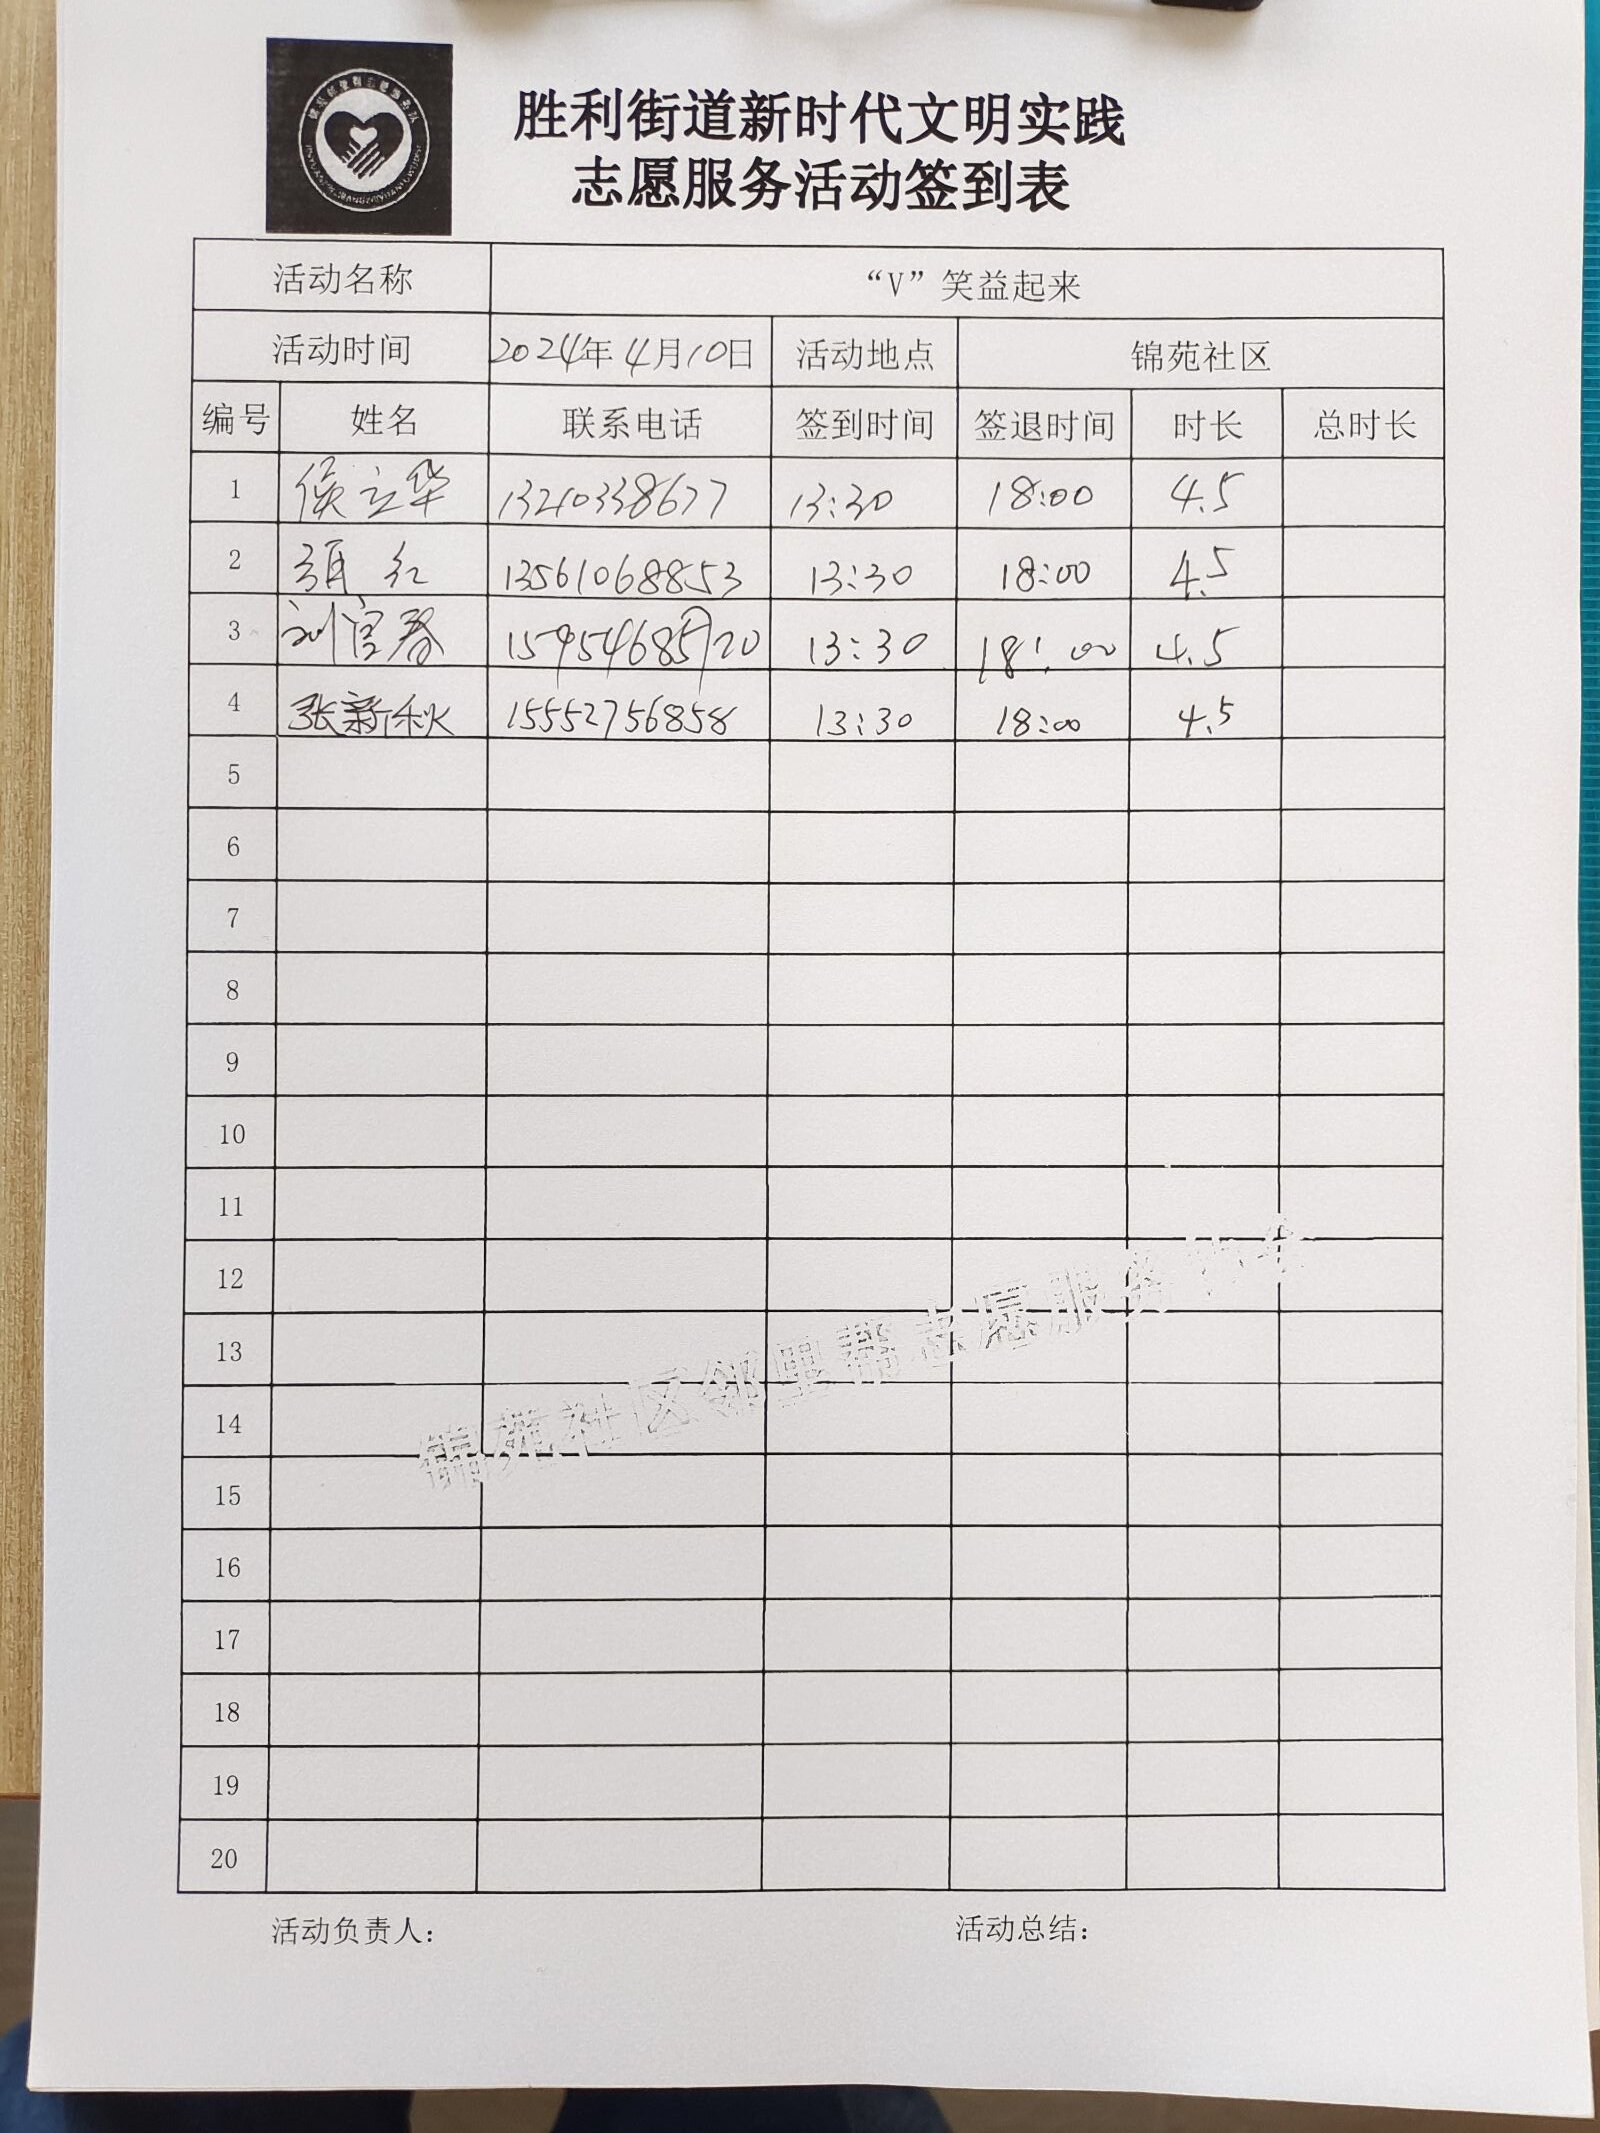 胜利街道新时代文明实践
志愿服务活动签到表
活动名称 “V”笑益起来
活动时间 2024年4月10日 活动地点 锦苑社区
编号 姓名 联系电话 签到时间 签退时间 时长 总时长
1 侯立华 13210338677 13:30 18:00 4.5
2 红 13561068853 13:30 18:00 4.5
3 刘官春 13:30 18:00 4.5
4 张新秋 15552756858 13:30 18:00 4.5
5
6
7
8
9
10
11
12
13
14
15
16
17
18
19
20
锦苑社区邻里帮志愿服务协会
活动负责人： 活动总结：